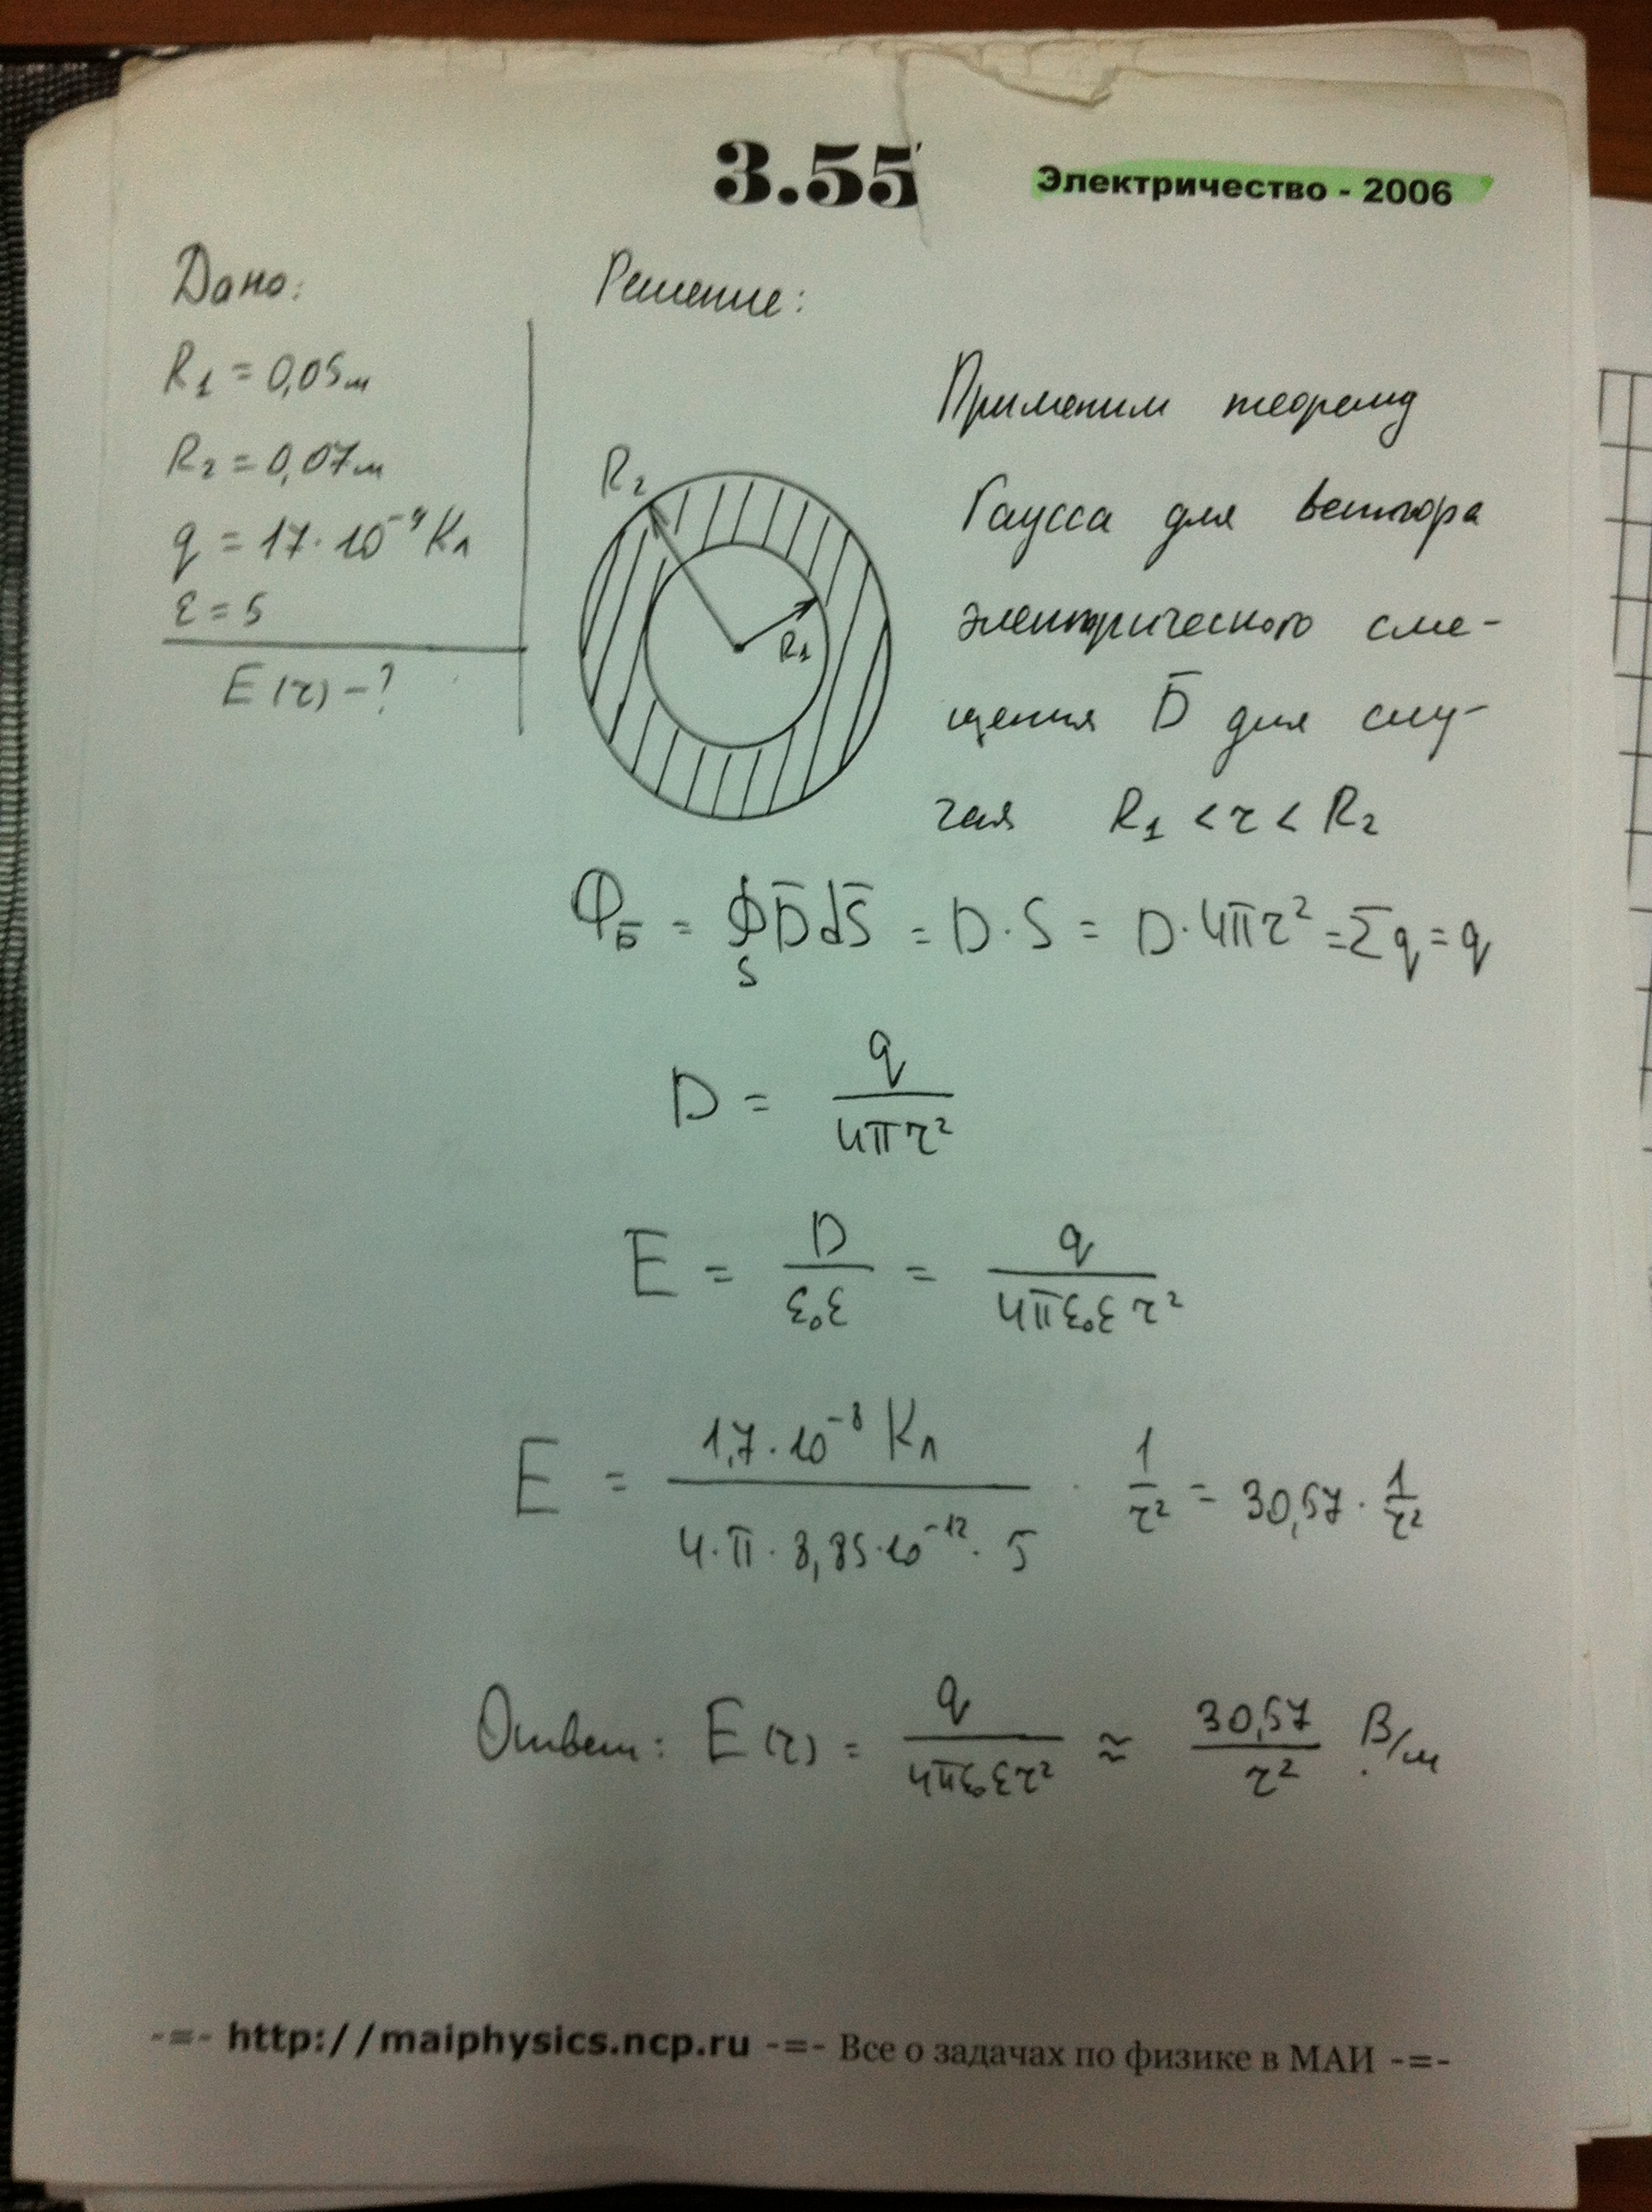 3.55
Электричество - 2006
Дано:
R₁ = 0,05м
R₂ = 0,07м
q = 17·10⁻⁹ Кл
ε = 5
E(r) - ?
Решение:
R₂
R₁
Применим теорему
Гаусса для вектора
электрического сме-
щения D̅ для слу-
чая R₁ < r < R₂
Ф_D̅ = ∮_S D̅ dS̅ = D·S = D·4πr² = Σq = q
D = q / 4πr²
E = D / ε₀ε = q / 4πε₀εr²
E = 1,7·10⁻⁸ Кл / 4·π·8,85·10⁻¹²·5 · 1/r² = 30,57 · 1/r²
Ответ: E(r) = q / 4πε₀εr² ≈ 30,57 / r² В/м
-=- http://maiphysics.ncp.ru -=- Все о задачах по физике в МАИ -=-